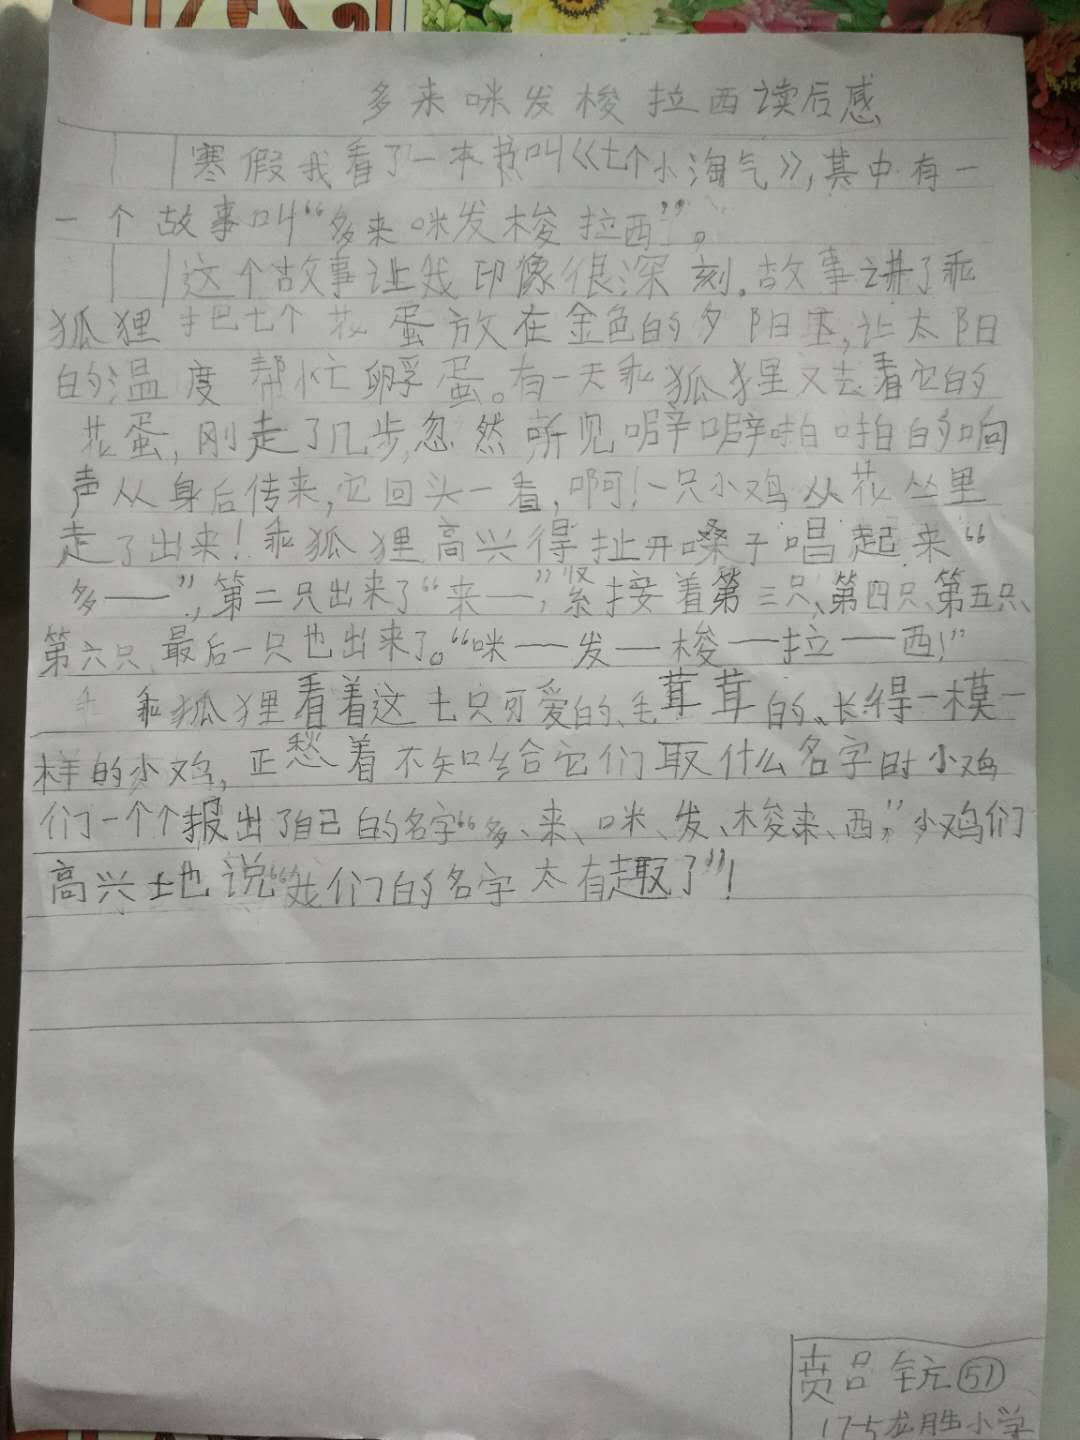 多来咪发梭拉西读后感
寒假我看了一本书叫《七个小淘气》,其中有一
一个故事叫“多来咪发梭拉西”。
这个故事让我印像很深刻。故事讲了乖
狐狸把七个花蛋放在金色的夕阳里,让太阳
的温度帮忙孵蛋。有一天乖狐狸又去看它的
花蛋,刚走了几步,忽然听见噼噼啪啪的响
声从身后传来,它回头一看,啊!一只小鸡从花丛里
走了出来!乖狐狸高兴得扯开嗓子唱起来“
多——”,第二只出来了“来——”,紧接着第三只、第四只、第五只、
第六只、最后一只也出来了。“咪——发—梭——拉——西!”
乖狐狸看着这七只可爱的、毛茸茸的、长得一模一
样的小鸡,正愁着不知给它们取什么名字时小鸡
们一个个报出了自己的名字“多、来、咪、发、梭、来、西,”小鸡们
高兴土也说“我们的名字太有趣了”!
贲吕 51
17-5龙胜小学